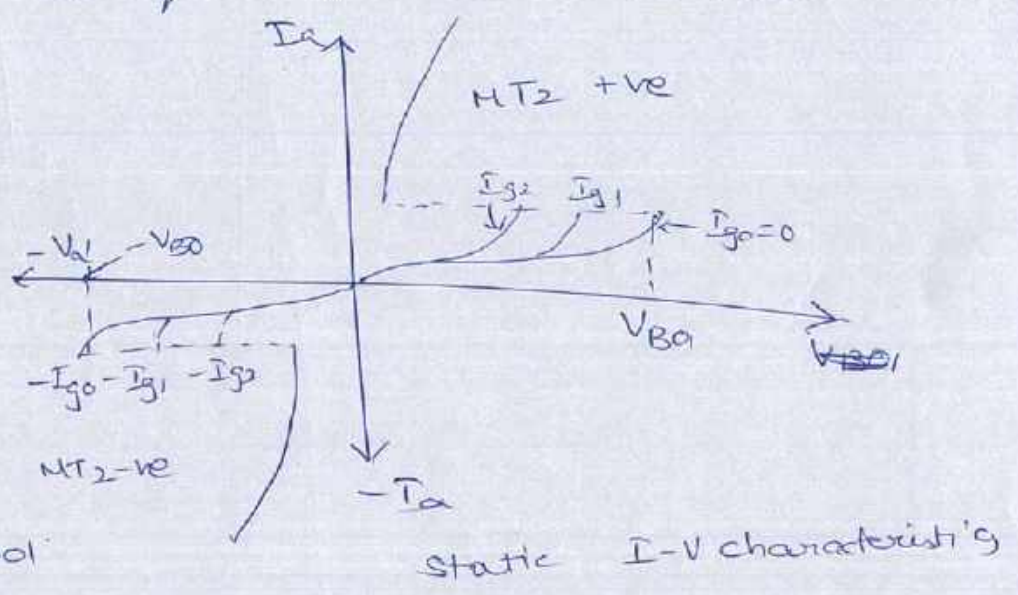 Ia
MT2 +ve
Ig2 Ig1
Ig0=0
-Va -VB0
VB01
-Ig0 -Ig1 -Ig2
MT2-ve
-Ia
ol
static I-V characteristics